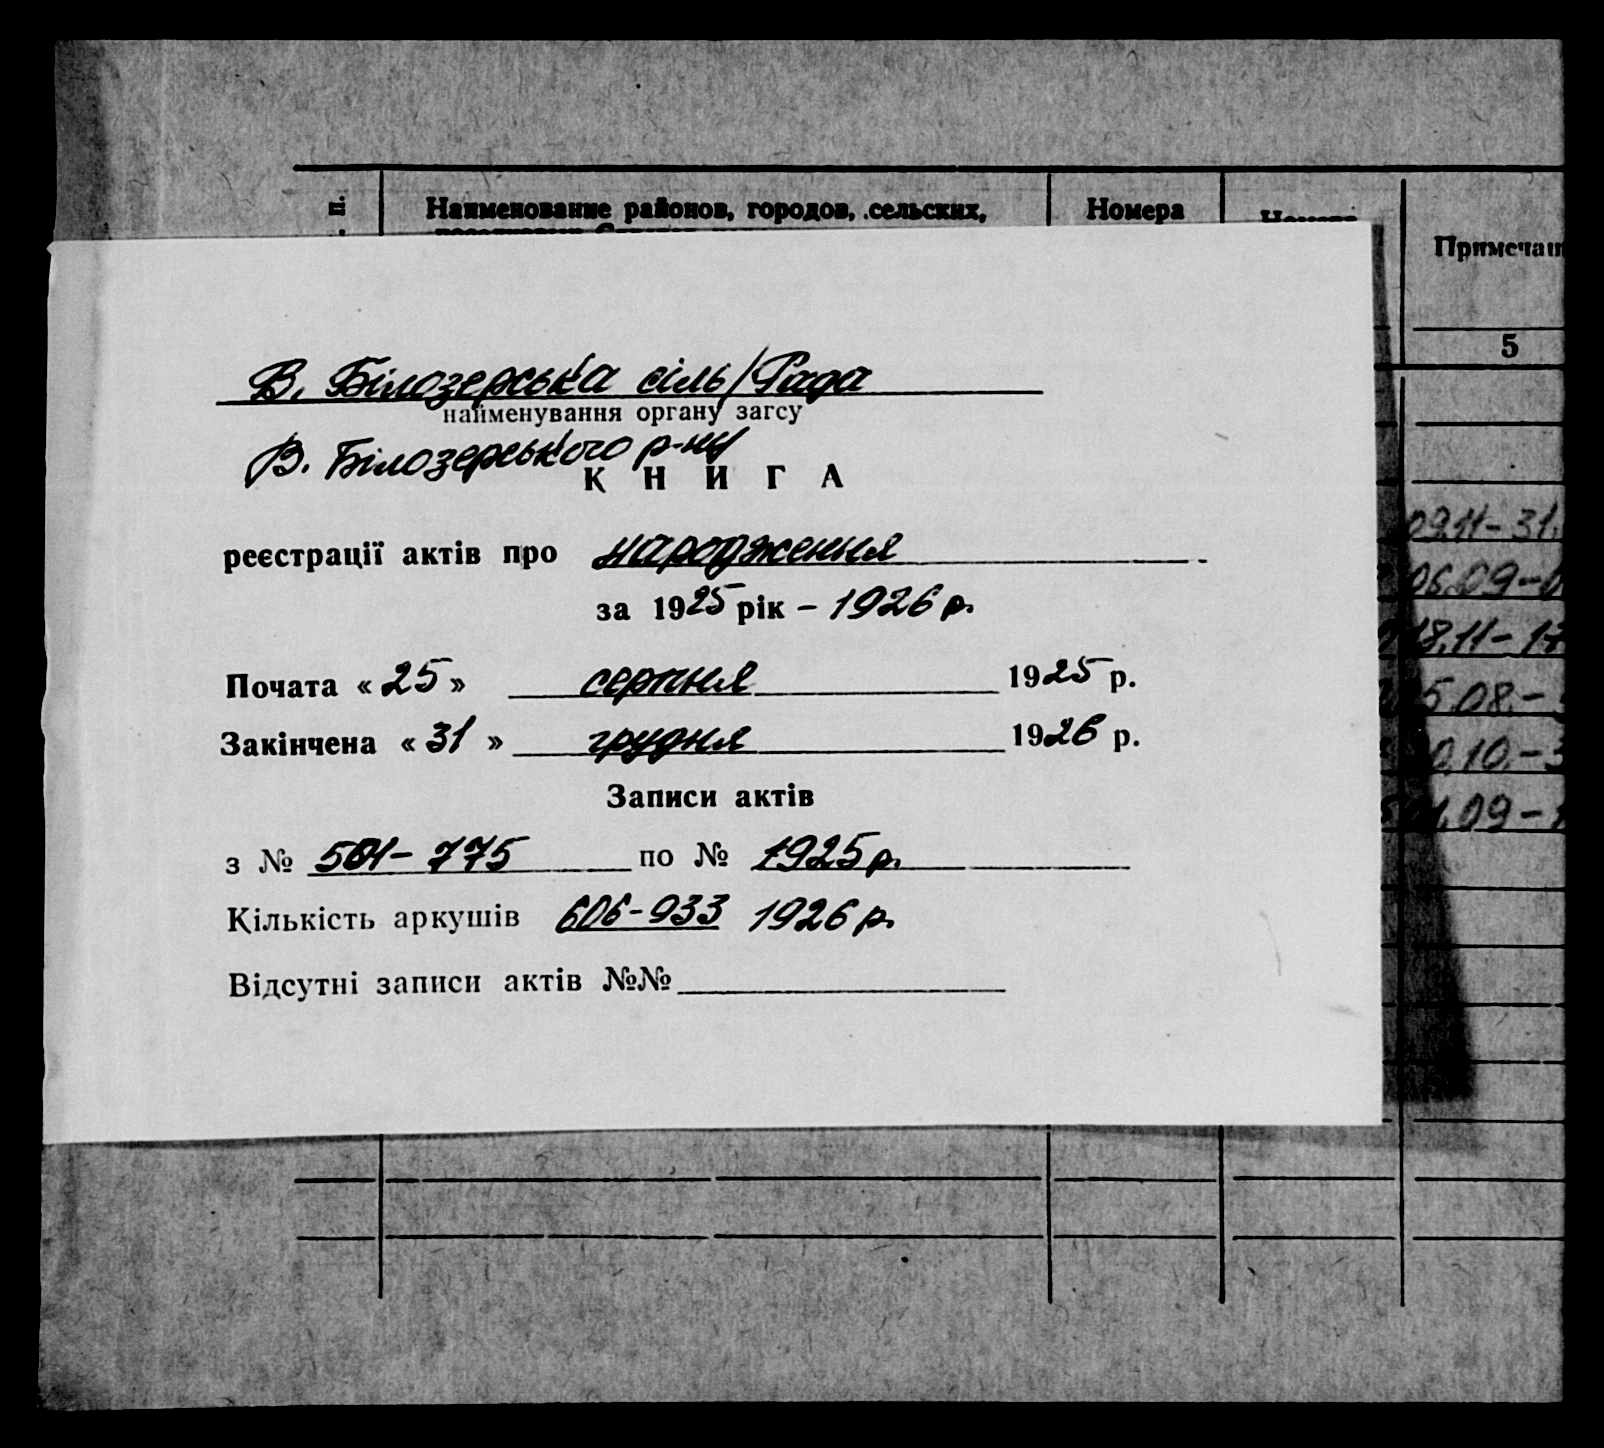 Наименование районов, городов, сельских,
Номера
Примечан
5
В. Білозерська сіль/Рада
найменування органу загсу
В. Білозерського р-ну
КНИГА
реєстрації актів про народження
за 1925 рік - 1926 р.
Почата «25» серпня 1925 р.
Закінчена «31» грудня 1926 р.
Записи актів
з № 501-775 по № 1925 р.
Кількість аркушів 606-933 1926 р.
Відсутні записи актів №№
09.11-31.
06.09-0
18.11-17
5.08.-
0.10.-3
.09-1